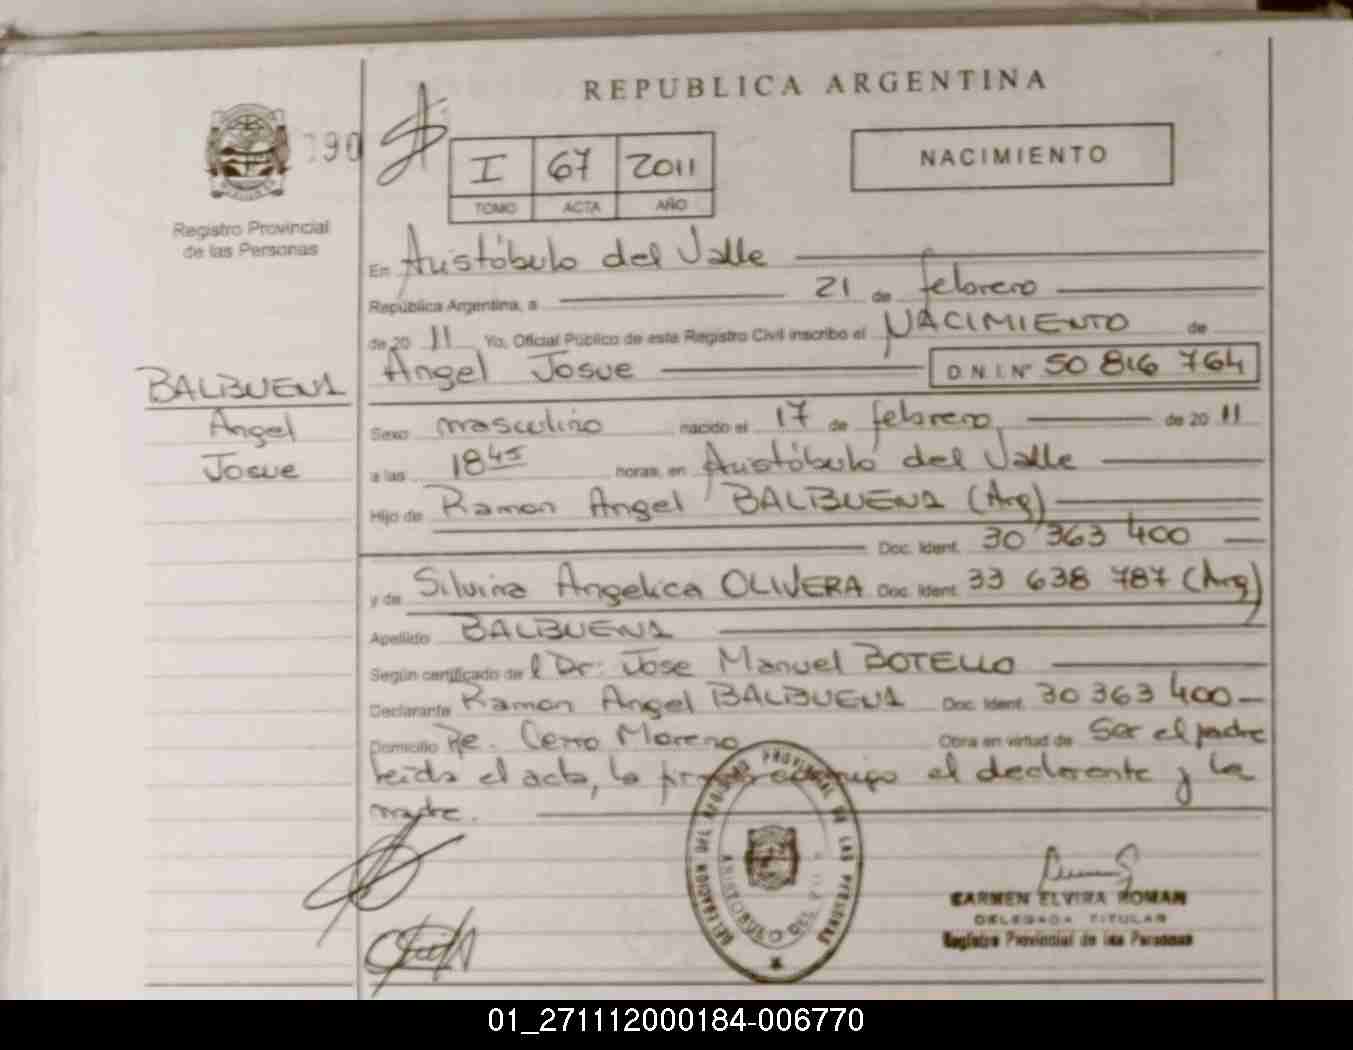 REPUBLICA ARGENTINA
90
I 67 2011
TOMO ACTA AÑO
NACIMIENTO
Registro Provincial
de las Personas
En Aristóbulo del Valle
República Argentina, a 21 de febrero
de 20 11 Yo, Oficial Público de este Registro Civil inscribo el NACIMIENTO de
Angel Josue D.N.I.Nº 50 816 764
BALBUENA
Angel
Josue
Sexo masculino nacido el 17 de febrero de 20 11
a las 18 45 horas, en Aristóbulo del Valle
Hijo de Ramon Angel BALBUENA (Arg)
Doc. Ident. 30 363 400
y de Silvina Angelica OLIVERA Doc. Ident. 33 638 787 (Arg)
Apellido BALBUENA
Según certificado de l Dr: Jose Manuel BOTELLO
Declarante Ramon Angel BALBUENA Doc. Ident. 30 363 400
Domicilio Pe. Cerro Moreno Obra en virtud de Ser el padre
leida el acta, la el declarante y la
madre.
DELEGACION DEL REGISTRO PROVINCIAL DE LAS PERSONAS
ARISTOBULO DEL
CARMEN ELVIRA ROMAN
DELEGADA TITULAR
Registro Provincial de las Personas
01_271112000184-006770